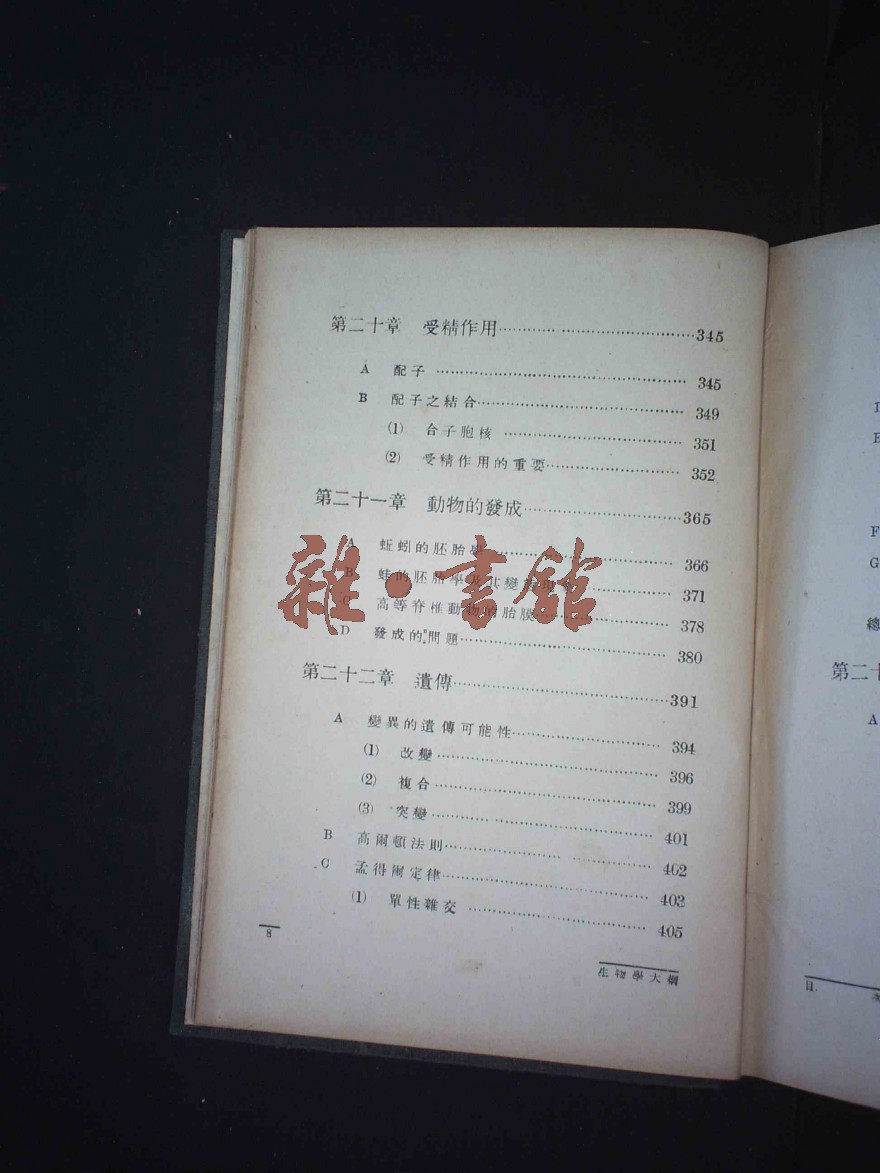 第二十章 受精作用…………345
A 配子…………345
B 配子之結合…………349
(1) 合子胞核…………351
(2) 受精作用的重要…………352
第二十一章 動物的發成…………365
A 蚯蚓的胚胎學…………366
B 蛙的胚胎學及其變…………371
C 高等脊椎動物的胎膜…………378
D 發成的問題…………380
第二十二章 遺傳…………391
A 變異的遺傳可能性…………394
(1) 改變…………396
(2) 複合…………399
(3) 突變…………401
B 高爾頓法則…………402
C 孟得爾定律…………403
(1) 單性雜交…………405
8
生物學大綱
雜·書館
D
E
F
G
總
第二十
A
目